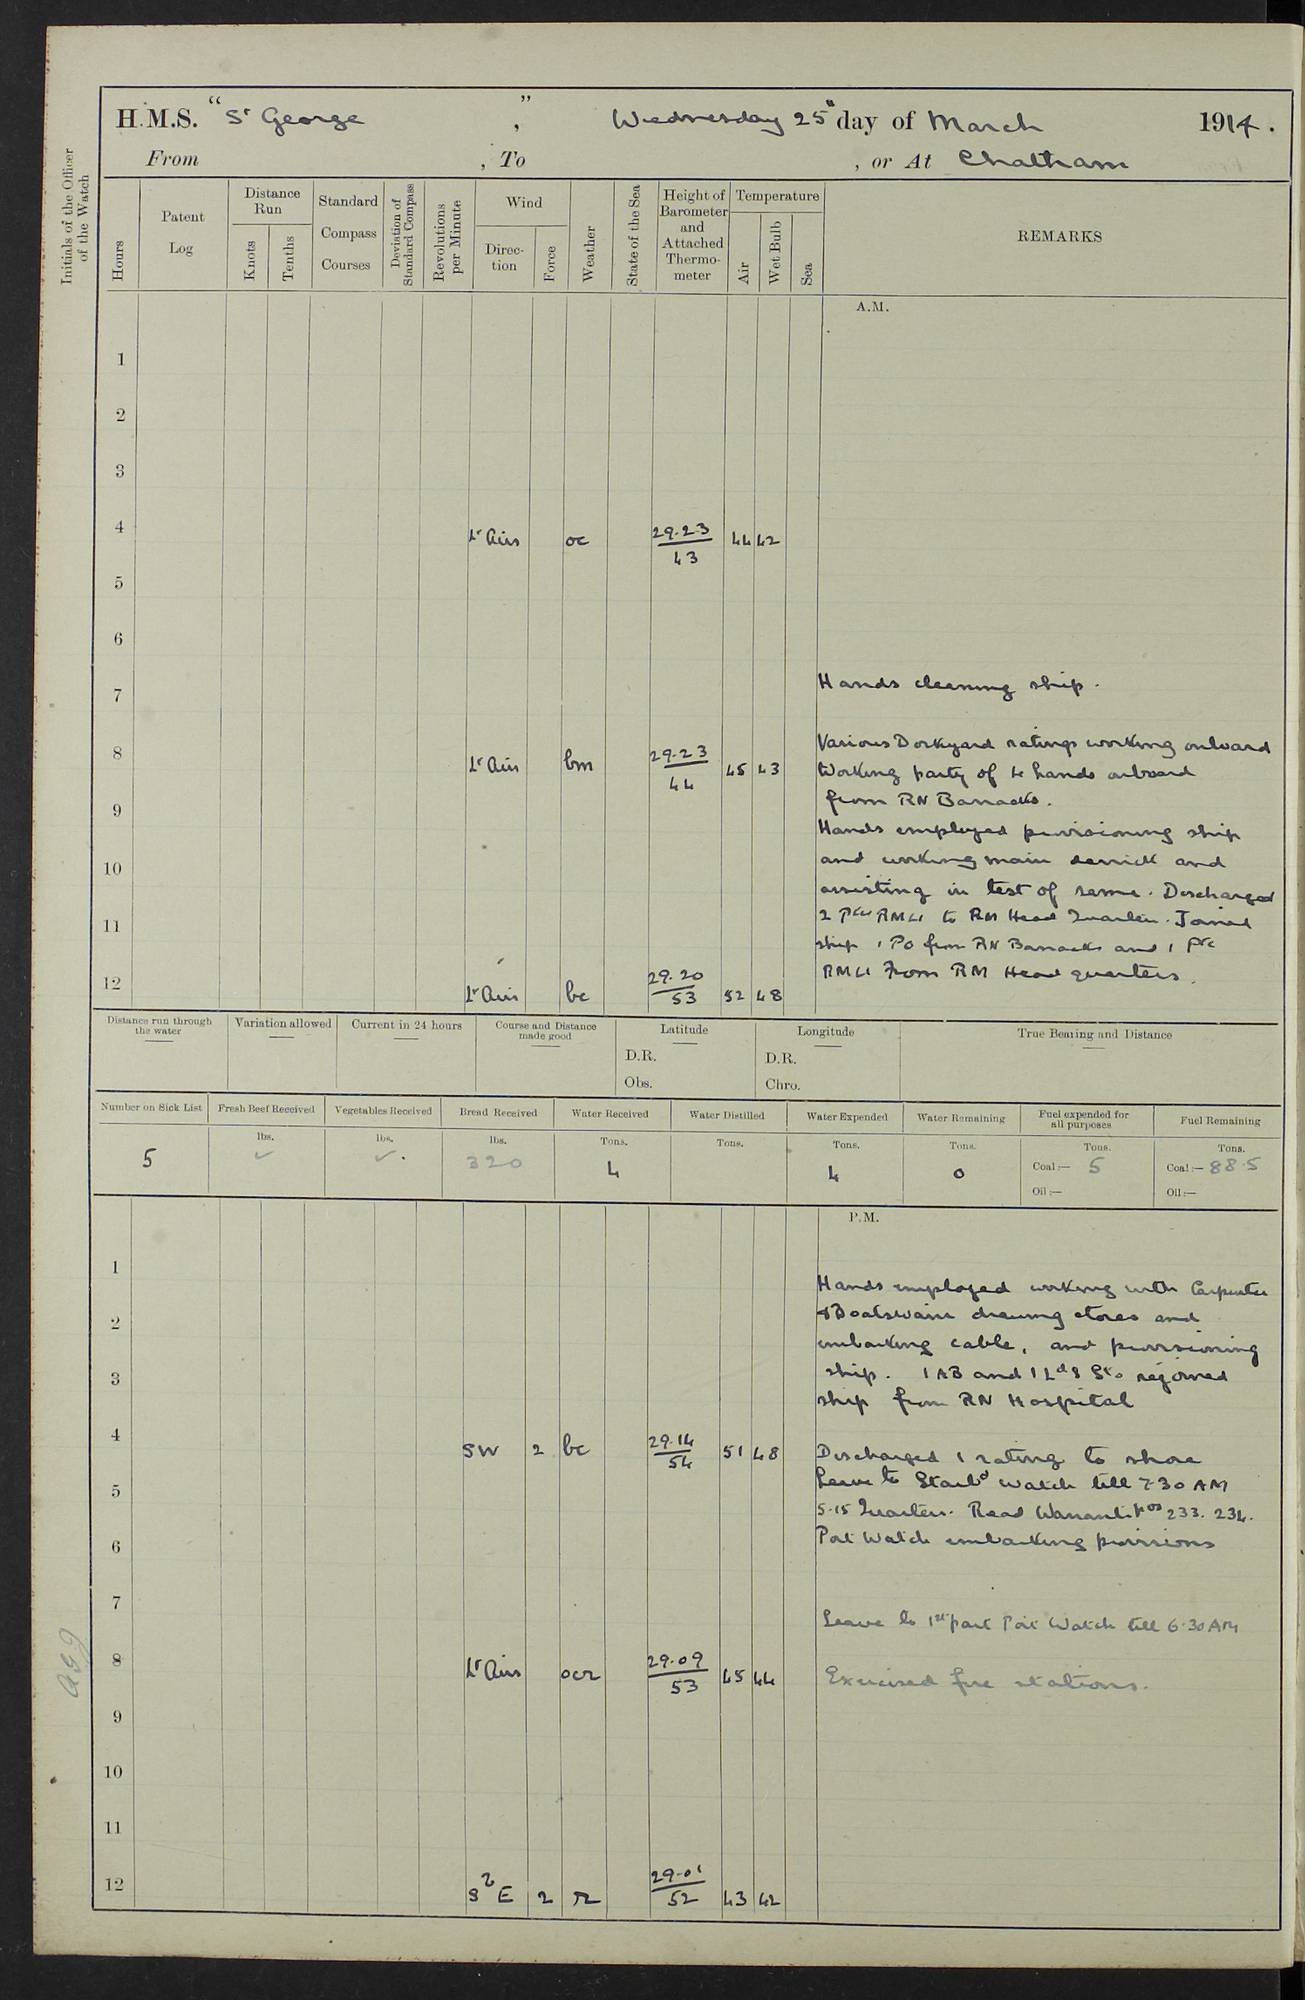 H.M.S. "St George", Wednesday 25th day of March 1914.
From , To , or At Chatham
Initials of the Officer of the Watch
Hours
Patent Log
Distance Run
Knots
Tenths
Standard Compass Courses
Deviation of Standard Compass
Revolutions per Minute
Wind
Direction
Force
Weather
State of the Sea
Height of Barometer and Attached Thermometer
Temperature
Air
Wet Bulb
Sea
REMARKS
A.M.
1
2
3
4 Lt Airs oc 29.23/43 44 42
5
6
7 Hands cleaning ship.
Various Dockyard ratings working onboard
8 Lt Airs bm 29.23/44 45 43
Working party of 4 hands onboard
from RN Barracks.
9
Hands employed provisioning ship
10 and working main derrick and
assisting in test of same. Discharged
2 Ptes RMLI to RM Head Quarters. Joined
11
ship 1 PO from RN Barracks and 1 Pte
RMLI from RM Head quarters.
12 Lt Airs bc 29.20/53 52 48
Distance run through the water
Variation allowed
Current in 24 hours
Course and Distance made good
Latitude
D.R.
Obs.
Longitude
D.R.
Chro.
True Bearing and Distance
Number on Sick List
Fresh Beef Received
Vegetables Received
Bread Received
Water Received
Water Distilled
Water Expended
Water Remaining
Fuel expended for all purposes
Fuel Remaining
5
lbs. ✓
lbs. ✓.
lbs. 320
Tons. 4
Tons.
Tons. 4
Tons. 0
Tons. Coal:— 5
Oil:—
Tons. Coal:— 88.5
Oil:—
P.M.
1
Hands employed working with Carpenter
2 & Boatswain drawing stores and
embarking cable, and provisioning
3 ship. 1 AB and 1 Ldg Sto rejoined
ship from RN Hospital
4 SW 2 bc 29.14/54 51 48
Discharged 1 rating to shore
Leave to Starbd Watch till 7.30 AM
5
5.15 Quarters. Read Warrants Nos 233. 234.
6 Port Watch embarking provisions
7
Leave to 1st part Port Watch till 6.30 AM
8 Lt Airs ocr 29.09/53 45 44
Exercised fire stations.
9
10
11
12 S E 2 r 29.01/52 43 42